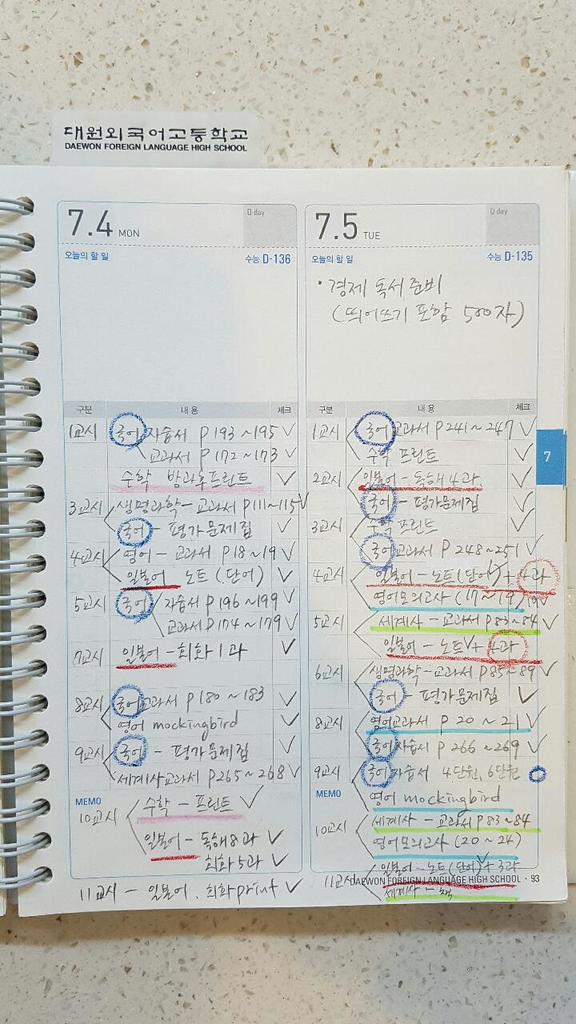 대원외국어고등학교
DAEWON FOREIGN LANGUAGE HIGH SCHOOL
7.4 MON
D day
오늘의 할 일
수능 D-136
구분 내용 체크
1교시 국어 자습서 P 193~195
교과서 P 172~173
수학 방과후프린트
3교시 생명과학-교과서 P 111~115
국어 - 평가문제집
4교시 영어 - 교과서 P 18~19
일본어 노트 (단어)
5교시 국어 자습서 P 196~199
교과서 P 174~179
7교시 일본어 - 회화 1과
8교시 국어 교과서 P 180~183
영어 mockingbird
9교시 국어 - 평가문제집
세계사교과서 P 265~268
MEMO
10교시 수학 - 프린트
일본어 - 독해 8과
회화 5과
11교시 - 일본어. 회화print
7.5 TUE
D day
오늘의 할 일
수능 D-135
· 경제 독서 준비
(띄어쓰기 포함 500자)
구분 내용 체크
1교시 국어 교과서 P 241~247
수학 프린트
2교시 일본어 - 독해 4과.
국어 - 평가문제집
3교시 수학 프린트
국어 교과서 P 248~251
4교시 일본어 - 노트(단어) + 4과
영어모의고사 (17~19)
5교시 세계사 - 교과서 P 83~84
일본어 - 노트 + 4과
6교시 생명과학 - 교과서 P 85~89
국어 - 평가문제집
8교시 영어교과서 P 20~21
국어 자습서 P 266~269
9교시 국어 자습서 4단원, 6단원
MEMO
영어 mockingbird
10교시 세계사 - 교과서 P 83~84
영어모의고사 (20~24)
11교시 일본어 - 노트(단어) + 3과
DAEWON FOREIGN LANGUAGE HIGH SCHOOL · 93
세계사 - 책
7